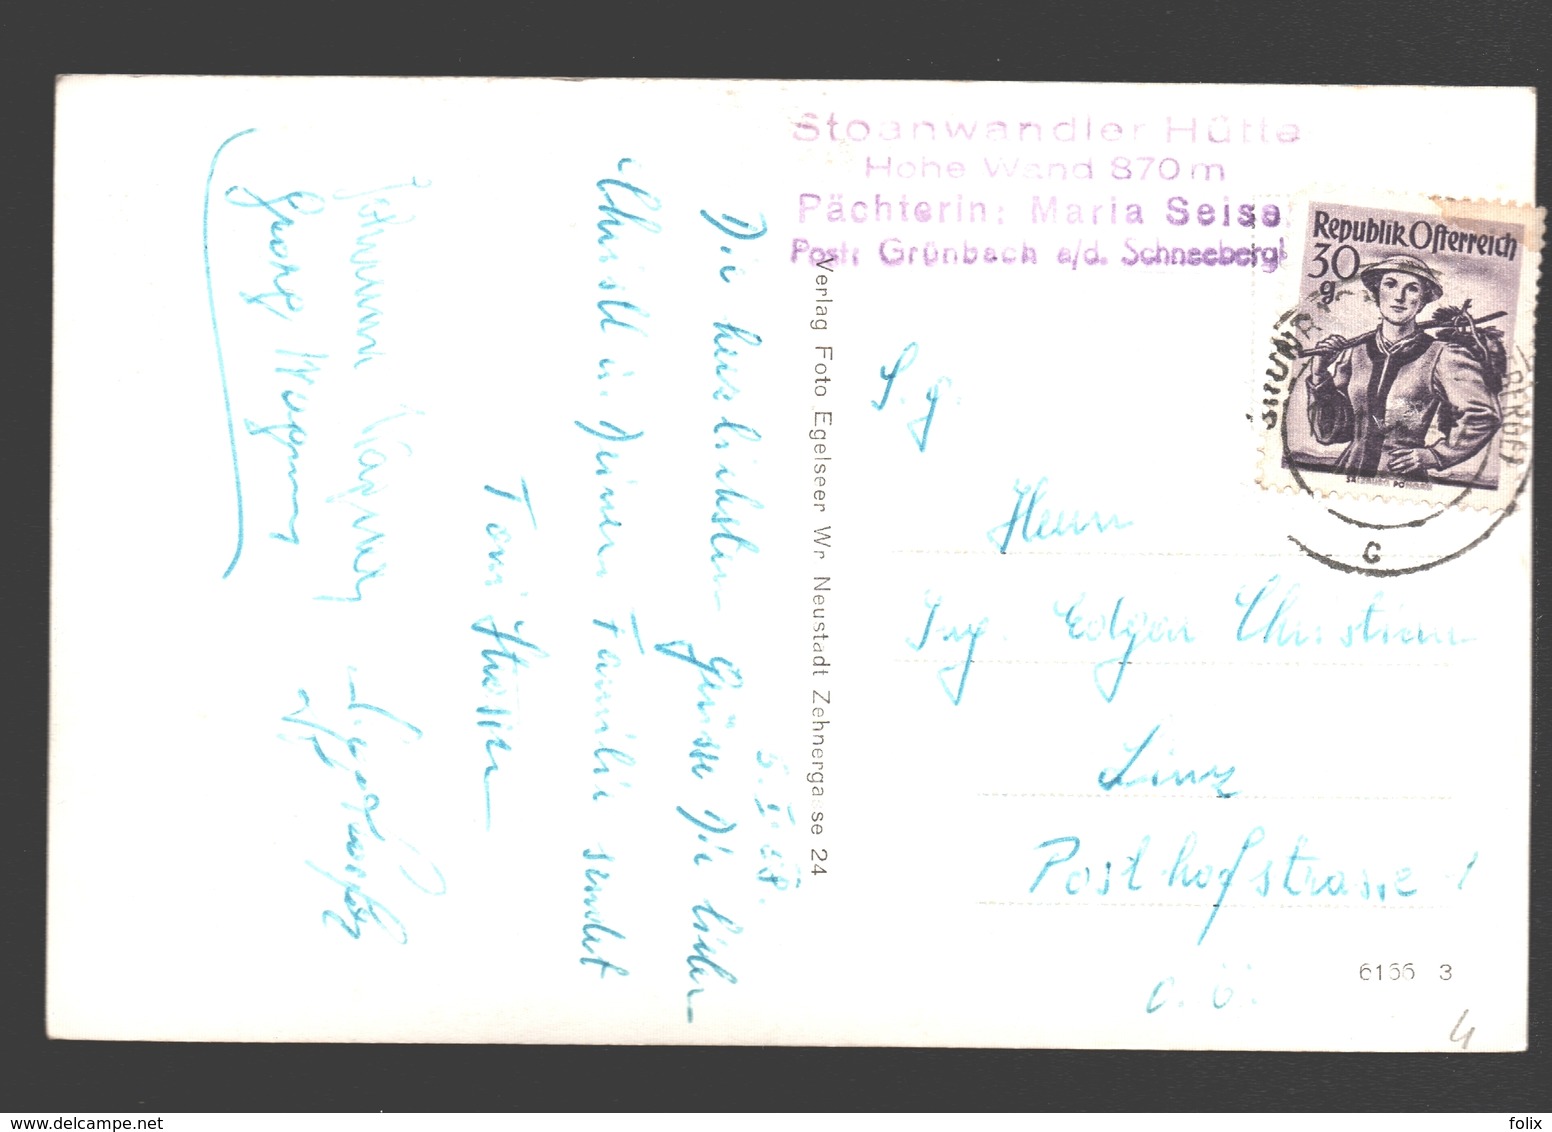 Stoanwandler Hütte
Hohe Wand 870 m
Pächterin: Maria Seise
Post: Grünbach a/d. Schneebergb
Republik Österreich
30
g
SALZBURG PONGAU
G
5. I.
Die herzlichsten Grüsse Dir lieber
Christl u. Deiner Familie sendet
Toni
Johann Wagner
Georg Wagner
Verlag Foto Egelseer Wr Neustadt Zehnergasse 24
S. g.
Herrn
Ing. Edgar Christian
Linz
Posthofstrasse 1
O. Ö.
6166 3
4
folix